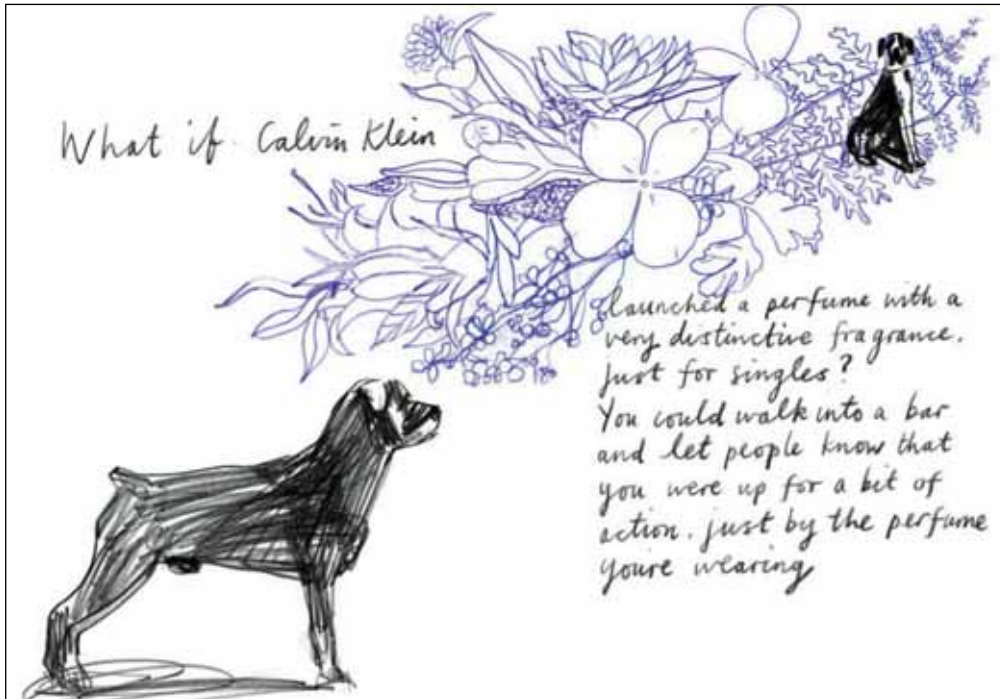 What if Calvin Klein
launched a perfume with a
very distinctive fragrance.
just for singles?
You could walk into a bar
and let people know that
you were up for a bit of
action. just by the perfume
youre wearing